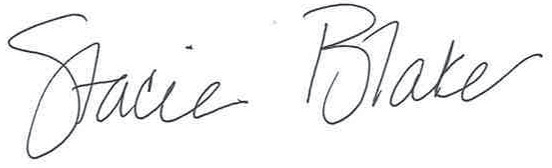 Stacie Blake